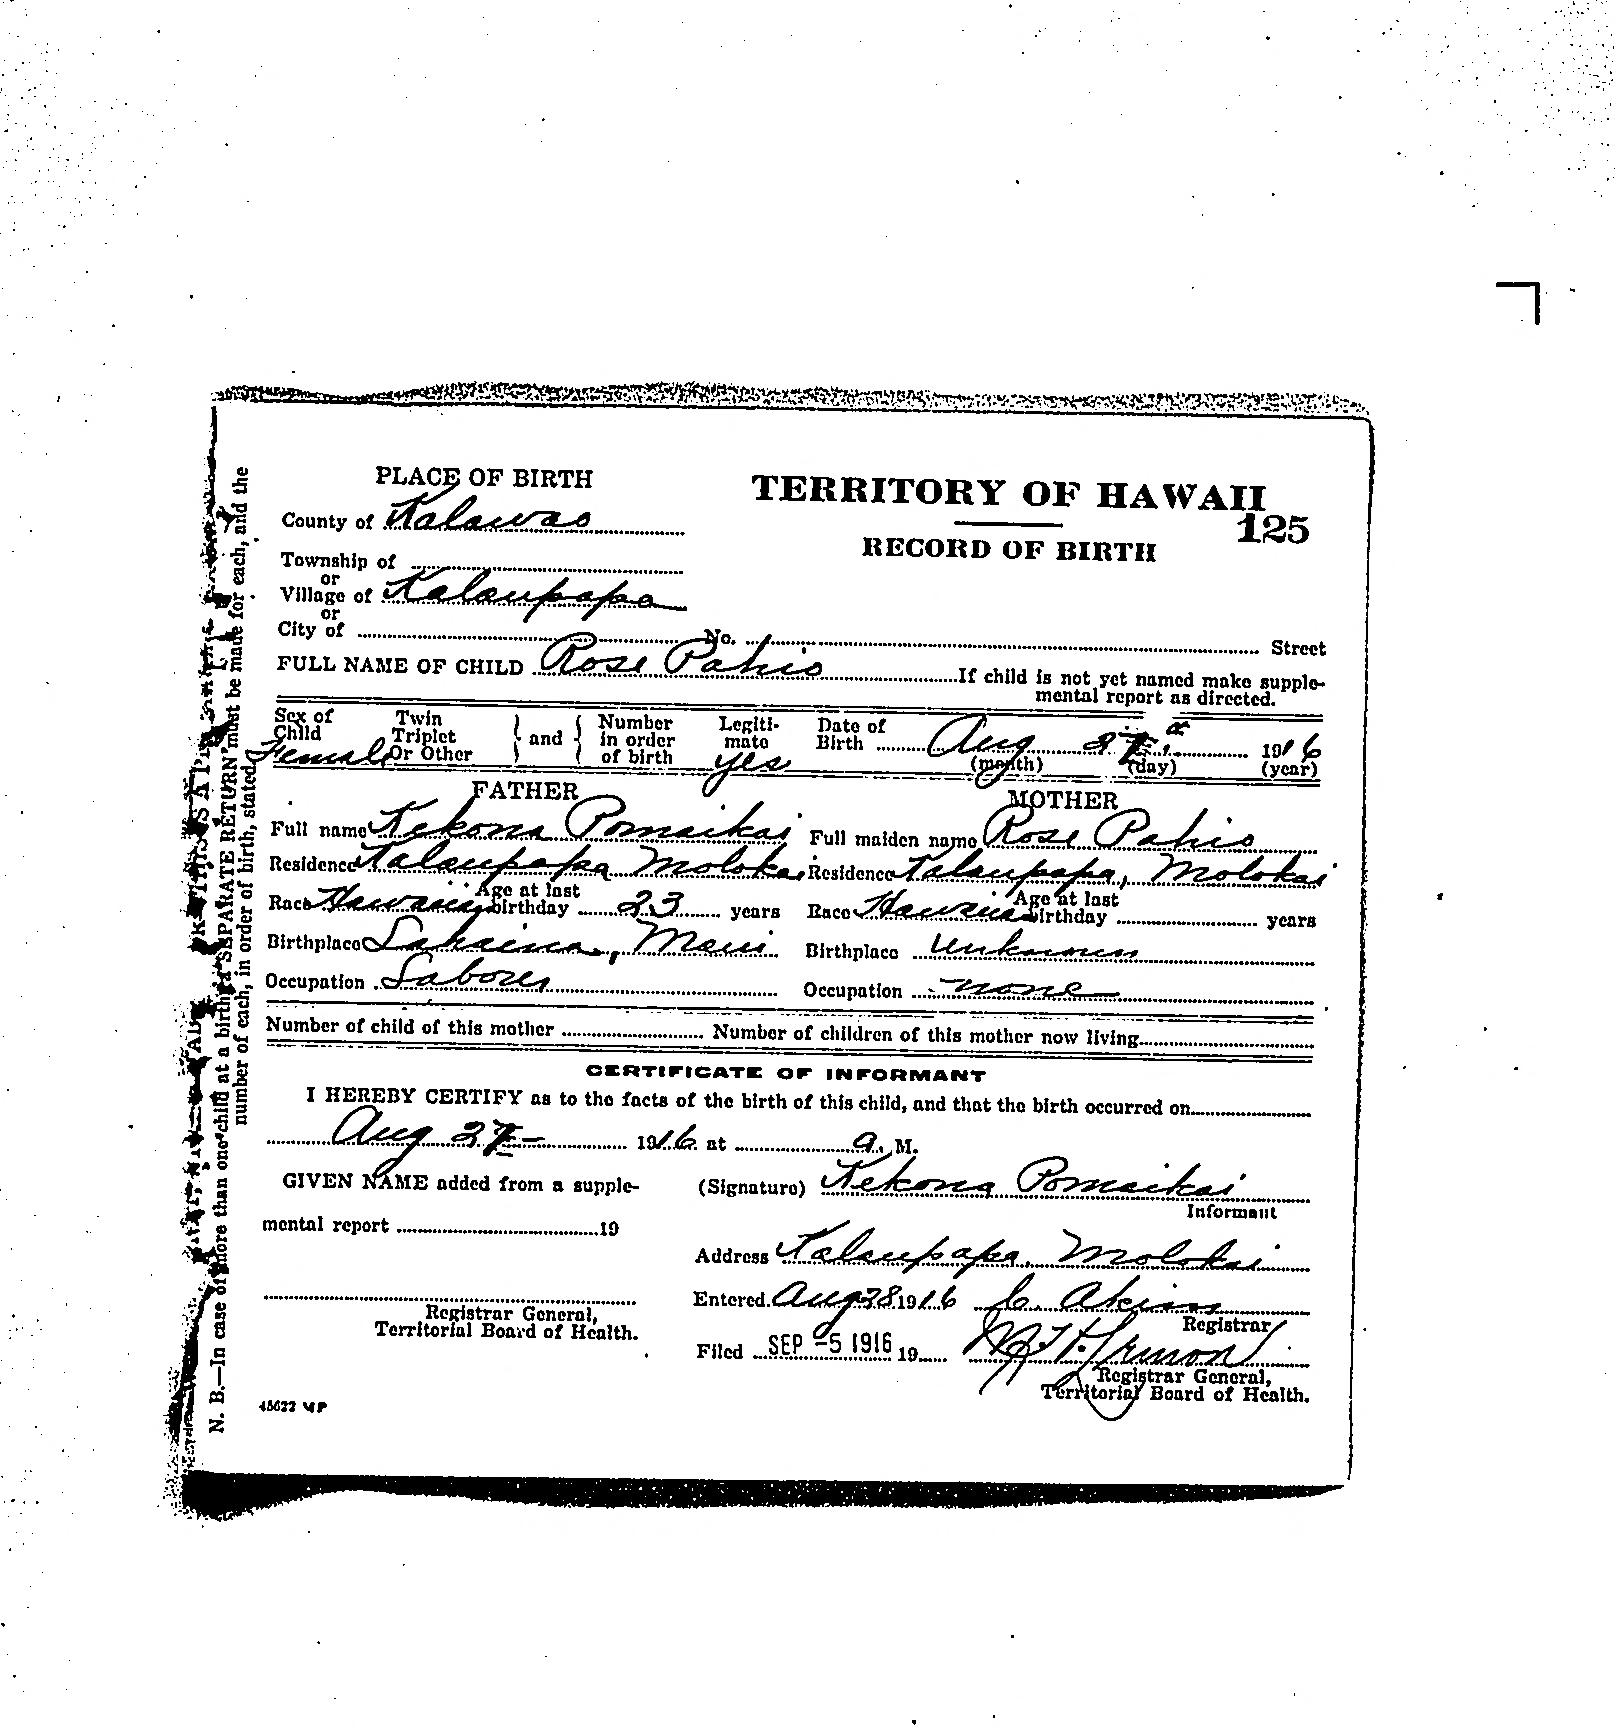 PLACE OF BIRTH
TERRITORY OF HAWAII
125
RECORD OF BIRTH
County of Kalawao
Township of
or
Village of Kalaupapa
or
City of No. Street
FULL NAME OF CHILD Rose Pahio If child is not yet named make supple-
mental report as directed.
Sex of Child Female
Twin Triplet Or Other } and { Number in order of birth
Legiti- mate yes
Date of Birth Aug 27 1916
(month) (day) (year)
FATHER
Full name Kekona Pomaikai
Residence Kalaupapa Molokai
Race Hawaiian Age at last birthday 23 years
Birthplace Lahaina, Maui
Occupation Laborer
MOTHER
Full maiden name Rose Pahio
Residence Kalaupapa, Molokai
Race Hawaiian Age at last birthday years
Birthplace Unknown
Occupation none
Number of child of this mother Number of children of this mother now living
CERTIFICATE OF INFORMANT
I HEREBY CERTIFY as to the facts of the birth of this child, and that the birth occurred on
Aug 27 1916 at a. M.
GIVEN NAME added from a supple-
mental report 19
Registrar General,
Territorial Board of Health.
(Signature) Kekona Pomaikai
Informant
Address Kalaupapa, Molokai
Entered Aug 28 1916 C. Akim
Registrar
Filed SEP -5 1916 19
Registrar General,
Territorial Board of Health.
45622
N. B.—In case of more than one child at a birth, a SEPARATE RETURN must be made for each, and the
number of each, in order of birth, stated.